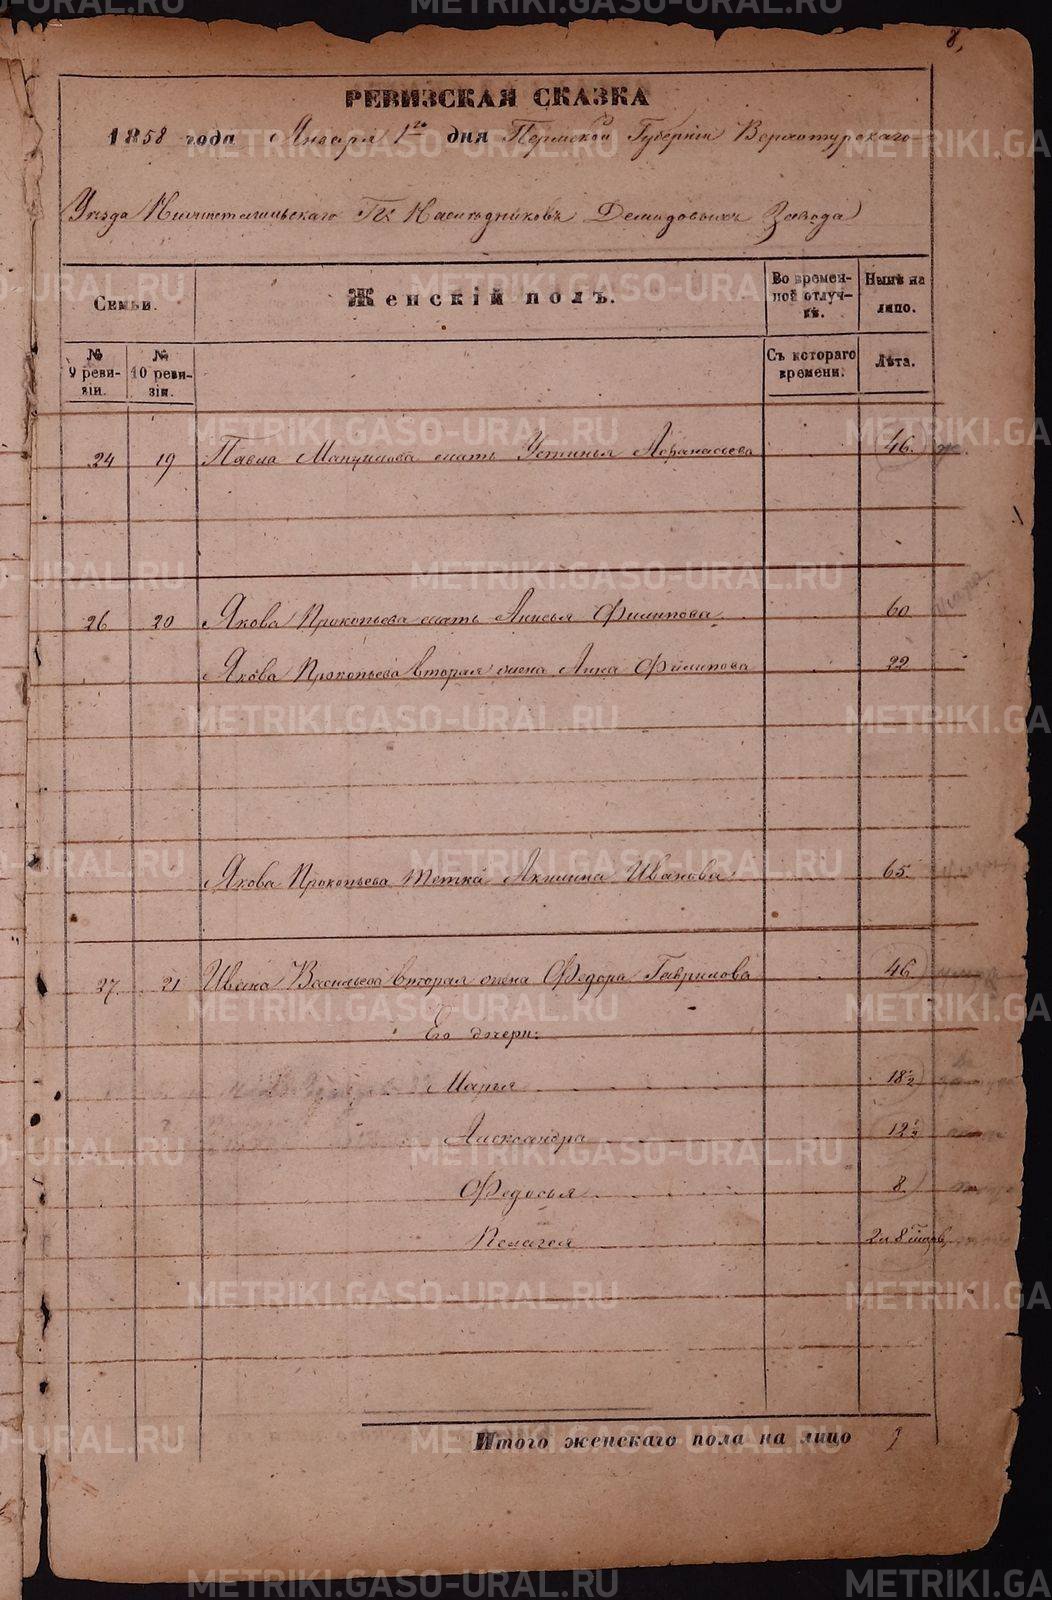 8,
РЕВИЗСКАЯ СКАЗКА
1858 года Января 1го дня Пермской Губерніи Верхотурскаго
Уѣзда Нижнетагильскаго Гг. Наслѣдниковъ Демидовыхъ Завода
Семьи. Женскій полъ. Во временной отлучкѣ. Нынѣ на лицо.
№ 9 ревизіи. № 10 ревизіи. Съ котораго времени. Лѣта.
24 19 Павла мать Устинья Афанасьева 46.
26 20 Якова Прокопьева мать Анисья Филипова 60
Якова Прокопьева вторая жена Анна Филипова 22
Якова Прокопьева тетка Акилина Иванова 65.
27. 21 Ивана Васильева вторая жена Федора Гаврилова 46
Его дочери:
Марья 18½
Александра 12½
Федосья 8
Пелагея 2 и 8
Итого женскаго пола на лицо 9
METRIKI.GASO-URAL.RU